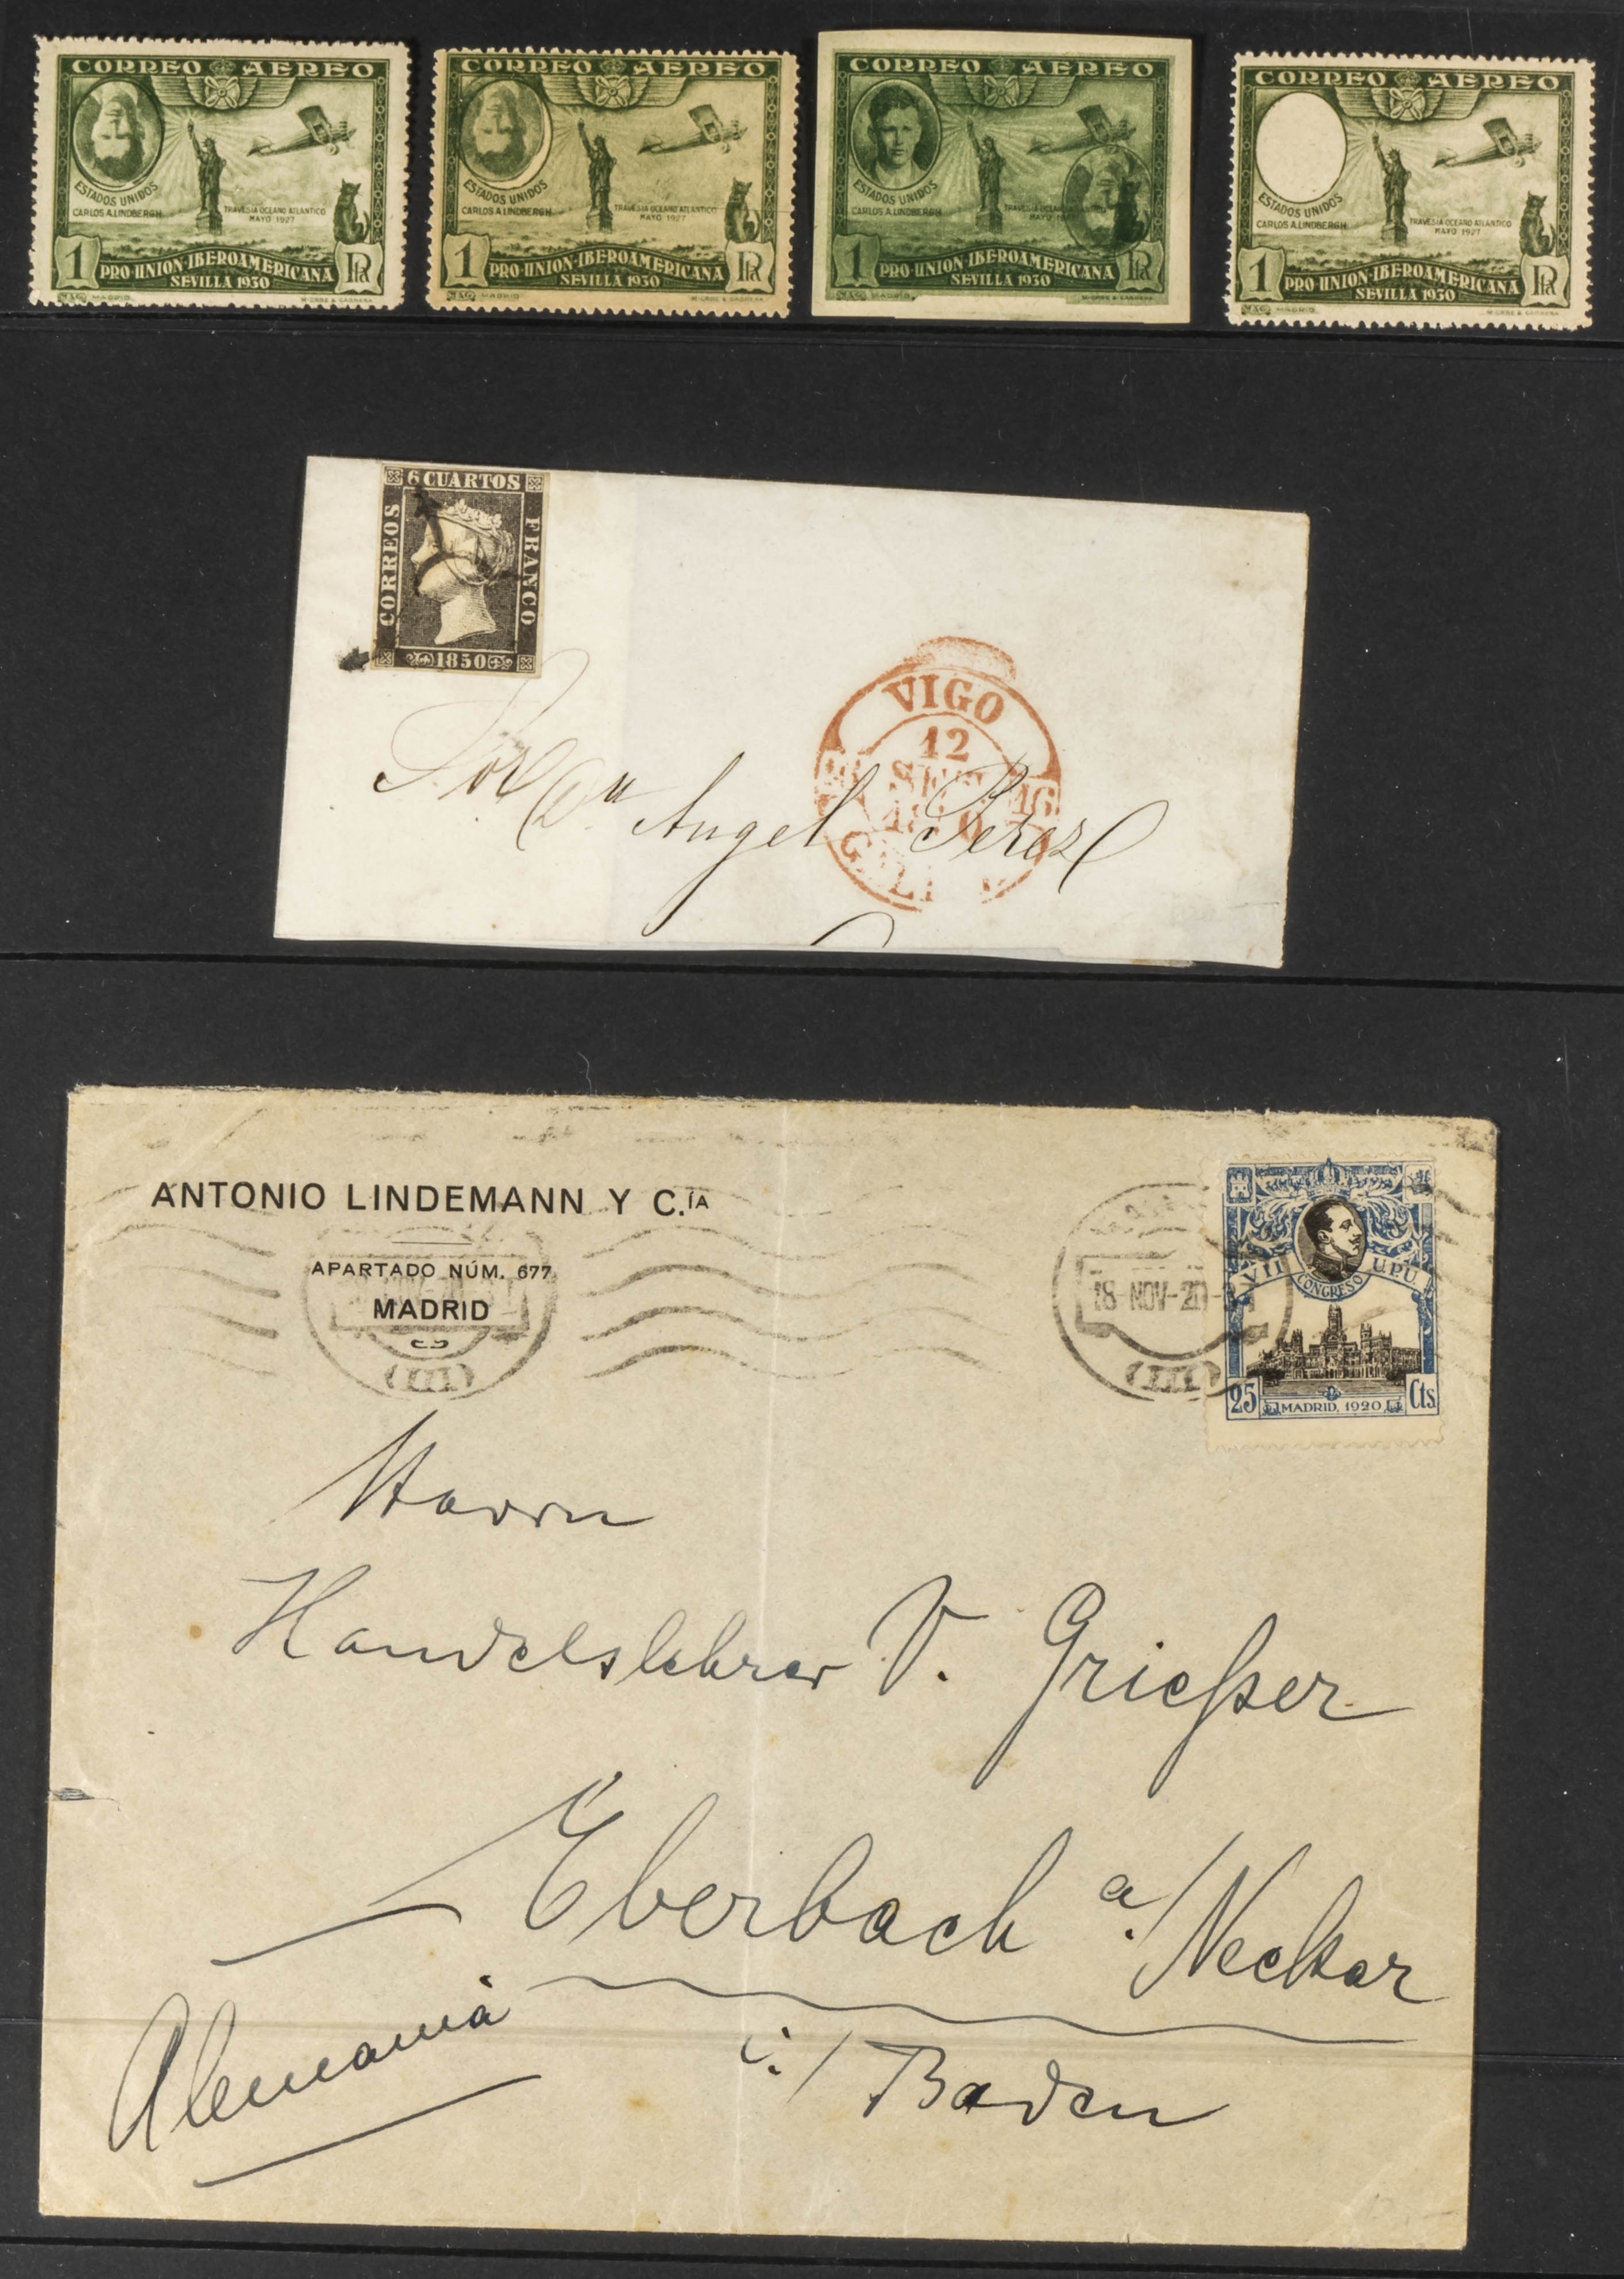 CORREO AEREO
ESTADOS UNIDOS
CARLOS A. LINDBERGH
TRAVESIA OCEANO ATLANTICO
MAYO 1927
1 PRO-UNION-IBEROAMERICANA Pta
SEVILLA 1930
MADRID
CORREO AEREO
ESTADOS UNIDOS
CARLOS A. LINDBERGH
TRAVESIA OCEANO ATLANTICO
MAYO 1927
1 PRO-UNION-IBEROAMERICANA Pta
SEVILLA 1930
MADRID
CORREO AEREO
ESTADOS UNIDOS
CARLOS A. LINDBERGH
TRAVESIA OCEANO ATLANTICO
MAYO
1 PRO-UNION-IBEROAMERICANA Pta
SEVILLA 1930
MADRID
CORREO AEREO
ESTADOS UNIDOS
CARLOS A. LINDBERGH
TRAVESIA OCEANO ATLANTICO
MAYO 1927
1 PRO-UNION-IBEROAMERICANA Pta
SEVILLA 1930
MADRID
6 CUARTOS
CORREOS
FRANCO
1850
VIGO
12
Angel Perez
ANTONIO LINDEMANN Y C.ÍA
APARTADO NÚM. 677
MADRID
(III)
18-NOV-20
(III)
VII CONGRESO UPU
25 MADRID, 1920 Cts
Herrn
Handelslehrer V. Grießer
Eberbach a/Neckar
i./Baden
Alemania